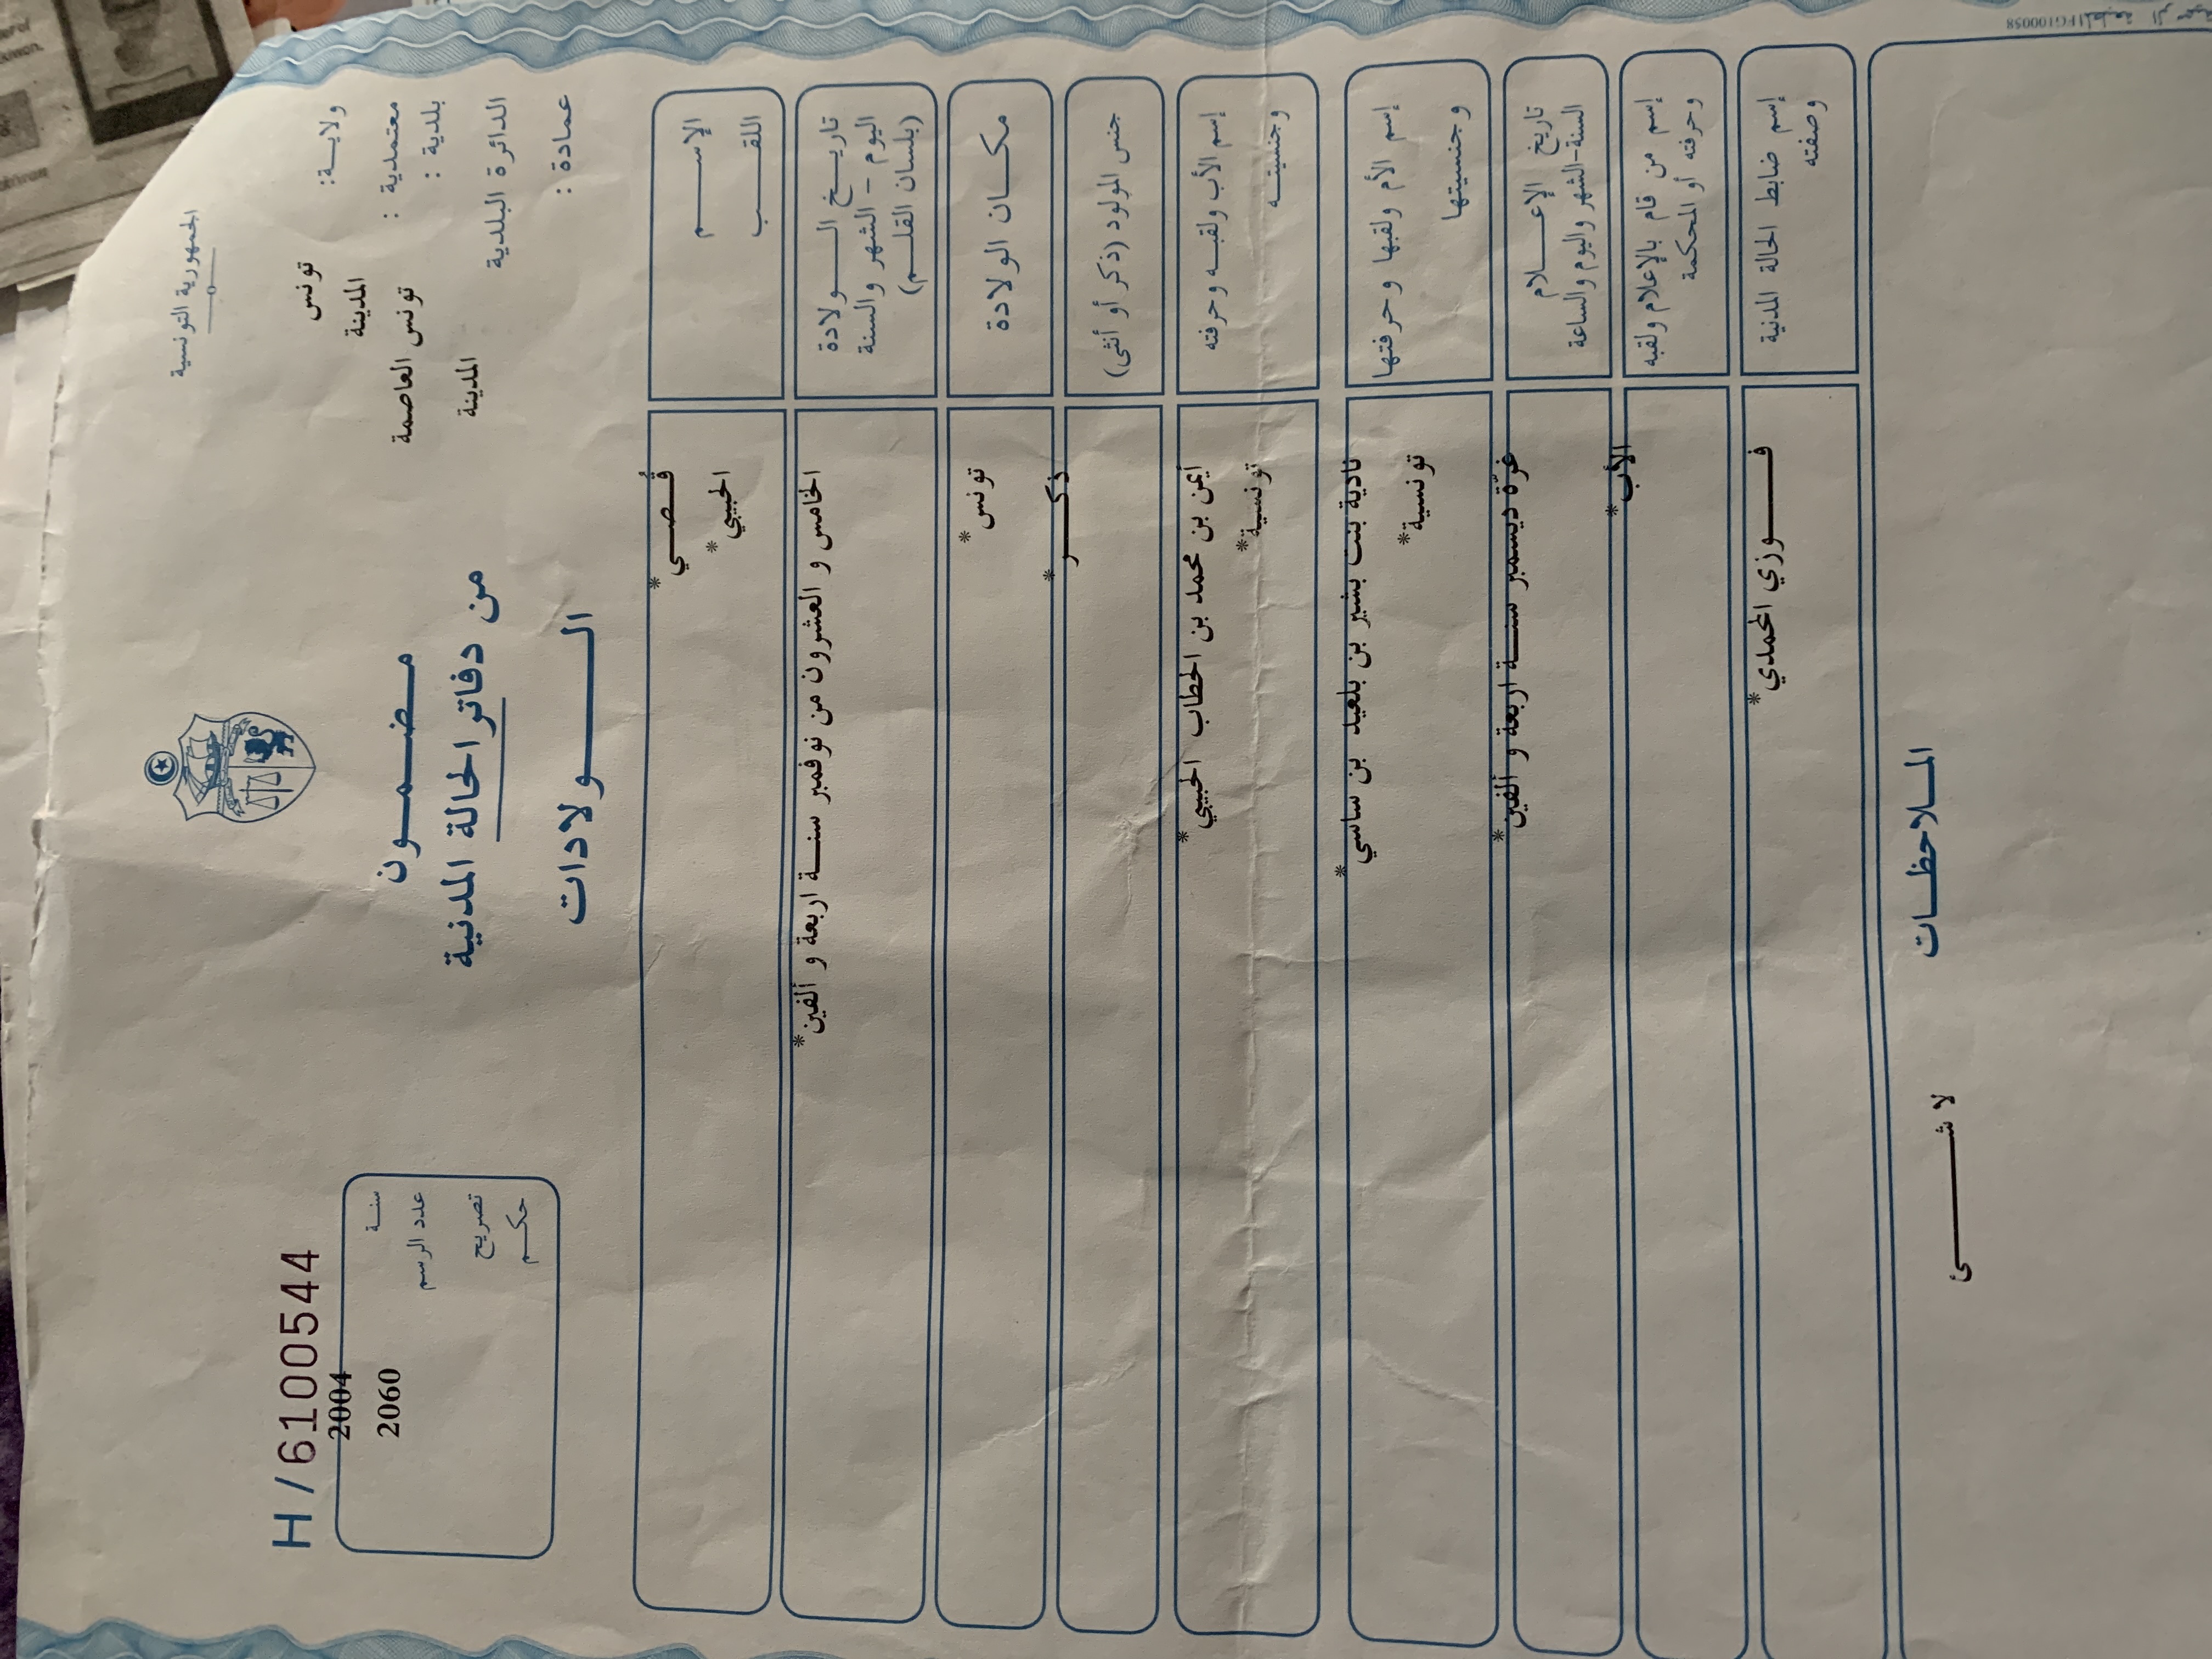 الجمهورية التونسية
ولايـــة: تونس
معتمدية : المدينة
بلدية : تونس العاصمة
الدائرة البلدية المدينة
عمادة :
مـــضـــمـــون
من دفاتر الحالة المدنية
الـــــولادات
H/6100544
سنـة 2004
عدد الرسم 2060
تصريح
حكـــم
الإســــــم قُصـــي*
اللقــــب الحبيبي*
تاريـــخ الــــولادة
اليوم - الشهر والسنة
(بلسان القلـــم)
الخامس و العشرون من نوفمبر سنـــة اربعة و ألفين*
مكـــان الولادة تونس*
جنس المولود (ذكر أو أنثى) ذكـــر*
إسم الأب ولقبـــه وحرفته أيمن بن محمد بن الحطاب الحبيبي*
وجنسيتـــه تونسية*
إسم الأم ولقبها وحرفتها نادية بنت بشير بن بلعيد بن ساسي*
وجنسيتها تونسية*
تاريخ الإعـــــلام
السنة-الشهر واليوم والساعة
غرّة ديسمبر سنـــة اربعة و ألفين*
إسم من قام بالإعلام ولقبه
وحرفته أو المحكمة
الأب*
إسم ضابط الحالة المدنية
وصفته
فـــــوزي المحمدي*
المـــلاحظـــات
لا شـــــــئ